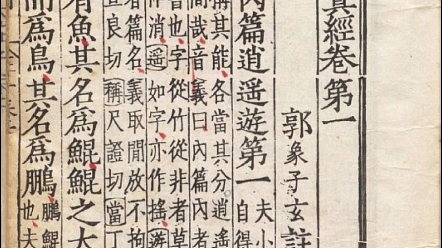 真經卷第一
郭象子玄註
内篇逍遙遊第一
夫小
自得
稱其能各當其分逍遙
間哉音義曰内篇内者
也字從竹從非者草
作消遙如字亦作搖遊
者篇名義取閒放不拘
直良切稱尺證切當丁
有魚其名爲鯤鯤之大
而爲鳥其名爲鵬
鵬鯤
也夫